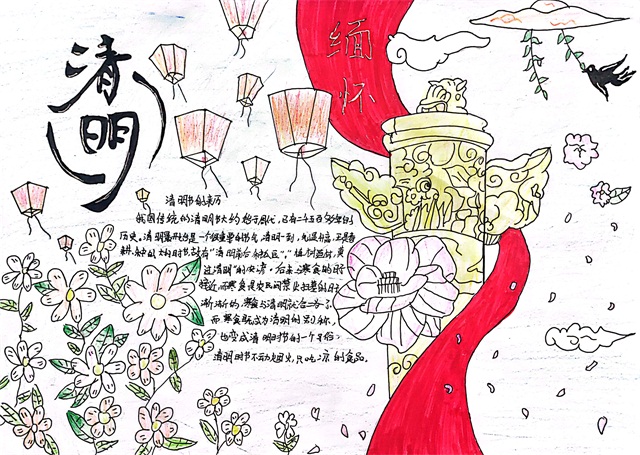 清明
缅怀
清明节的来历
我国传统的清明节大约始于周代,已有二千五百多年的
历史。清明最开始是一个很重要的节气,清明一到,气温升高,正是春
耕春种的大好时节,故有“清明前后,种瓜点豆”,“植树造林,莫
过清明”的农谚。后来与寒食的日子
接近,而寒食是农民间禁火扫墓的日子
渐渐的,寒食与清明就合二为一了
而寒食既成为清明的别称,
也变成清明时节的一个习俗,
清明时节不动烟火,只吃凉的食品。